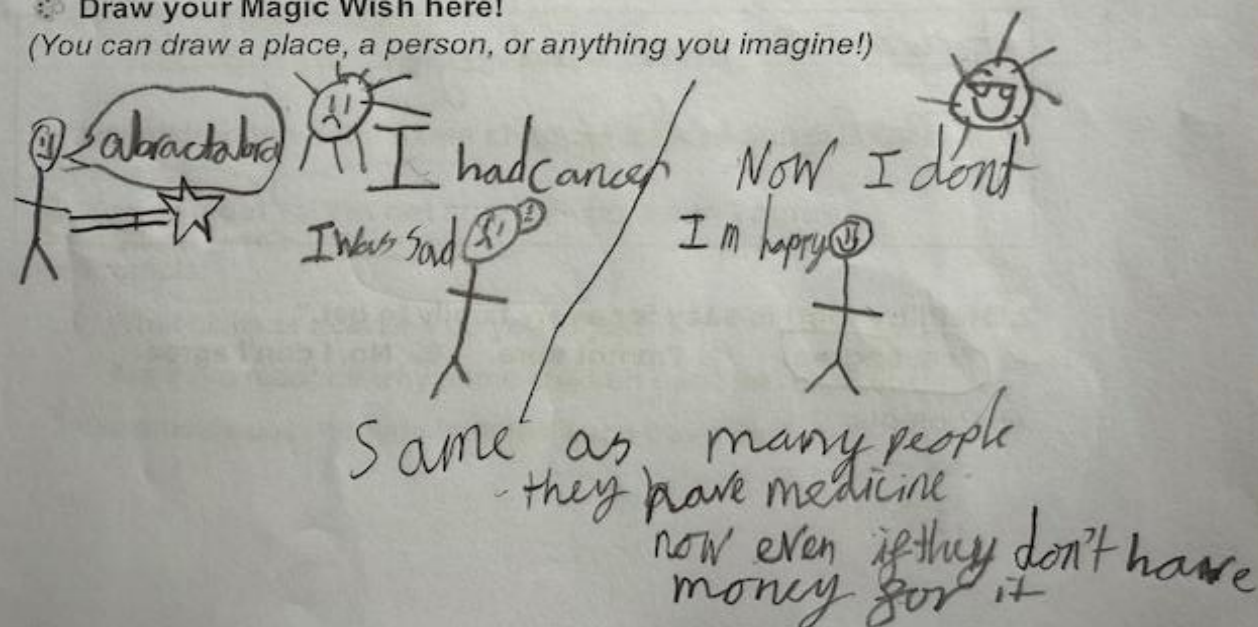 Draw your Magic Wish here!
(You can draw a place, a person, or anything you imagine!)
abractabra
I had cancer
I was sad
Now I don't
I m happy
Same as many people
they have medicine
now even if they don't have
money for it